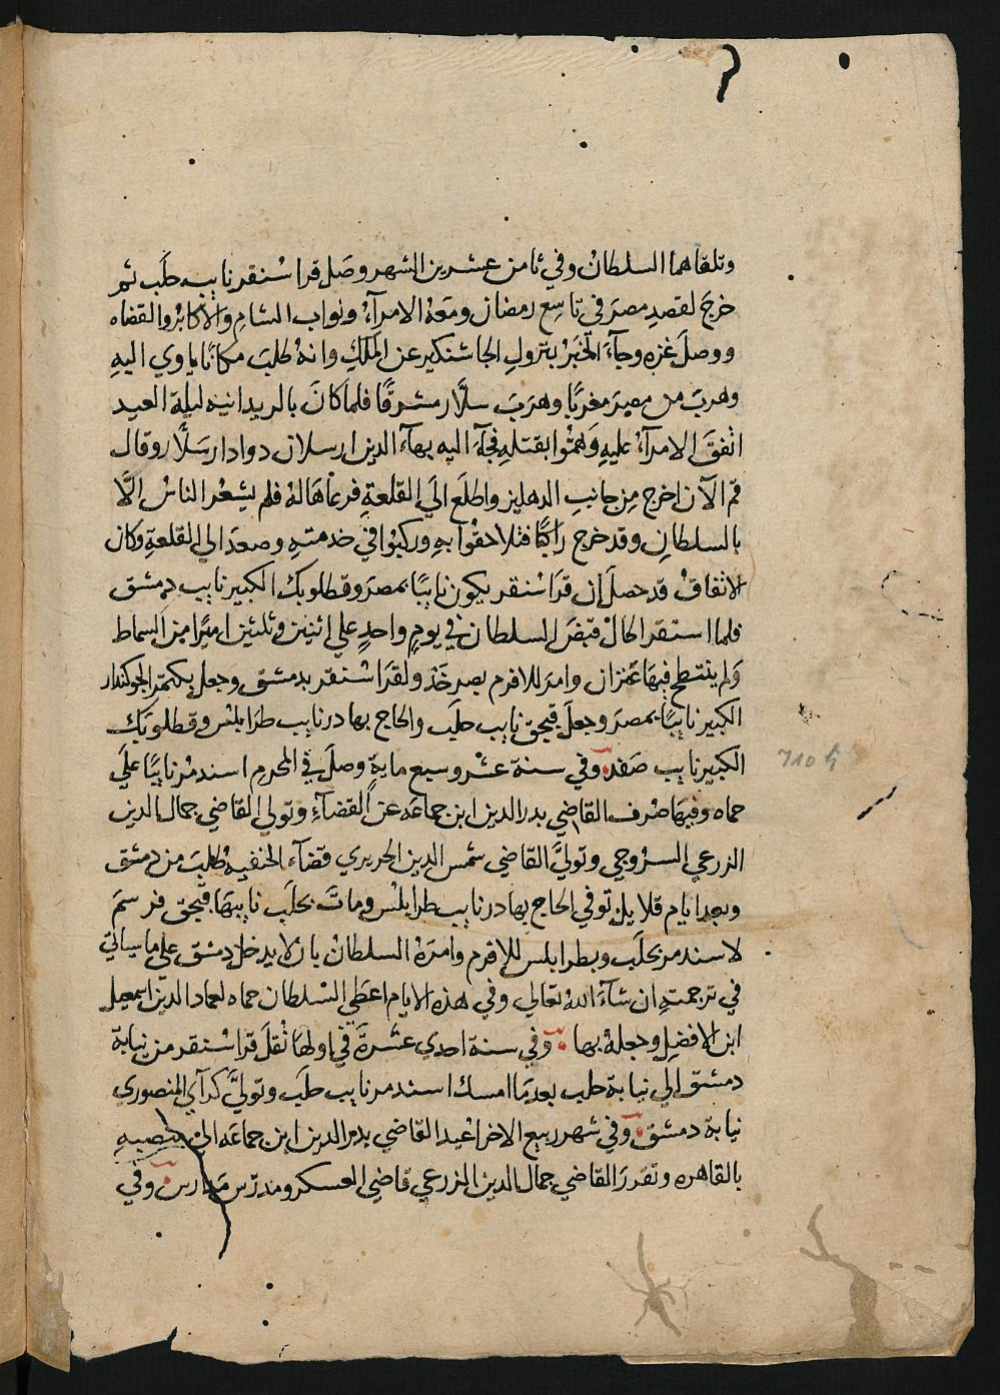 وتلقاهما السلطان وفي ثامن عشرين الشهر وصل قرا سنقر نايب حلب ثم
خرج لقصد مصر في تاسع رمضان ومعه الامرآء ونواب الشام والاكابر والقضاه
ووصل غزه وجآء الخبر بنزول الجاشنكير عن الملك وانه طلب مكانا ياوي اليه
وهرب من مصر مغربا وهرب سلار مشرقا فلما كان بالريدانيه ليلة العيد
اتفق الامرآء عليه وهموا بقتله فجآء اليه بهآء الدين ارسلان دوادار سلار وقال
قم الآن اخرج من جانب الدهليز واطلع الي القلعة فرعاها له فلم يشعر الناس الا
بالسلطان وقد خرج راكبا فتلاحقوا به وركبوا في خدمته وصعد الي القلعة وكان
الاتفاق قد حصل ان قرا سنقر يكون نايبا بمصر وقطلوبك الكبير نايب دمشق
فلما استقر الحال قبض السلطان في يوم واحد علي اثنين وثلثين اميرا من السماط
ولم ينتطح فيها عنزان وامر للافرم بصرخد ولقرا سنقر بدمشق وجعل بكتمر الجوكندار
الكبير نايبا بمصر وجعل قبجق نايب حلب والحاج بهادر نايب طرابلس وقطلوبك
الكبير نايب صفد وفي سنة عشر وسبع ماية وصل في المحرم اسندمر نايبا علي
حماه وفيها صرف القاضي بدر الدين ابن جماعه عن القضآء وتولي القاضي جمال الدين
الزرعي السروجي وتولي القاضي شمس الدين الحريري قضآء الحنفيه طلب من دمشق
وبعد ايام قلايل توفي الحاج بهادر نايب طرابلس ومات بحلب نايبها قبجق فرسم
لاسندمر بحلب وبطرابلس للافرم وامره السلطان بان لا يدخل دمشق علي ما سياتي
في ترجمته ان شآء الله تعالي وفي هذه الايام اعطي السلطان حماه لعماد الدين اسمعيل
ابن الافضل وجعله بها وفي سنة احدي عشرة في اولها نقل قرا سنقر من نيابة
دمشق الي نيابة حلب بعد ما امسك اسندمر نايب حلب وتولي كرآي المنصوري
نيابة دمشق وفي شهر ربيع الاخر اعيد القاضي بدر الدين ابن جماعه الي منصبه
بالقاهره وتقرر القاضي جمال الدين الزرعي قاضي العسكر ومدرس مدارس وفي